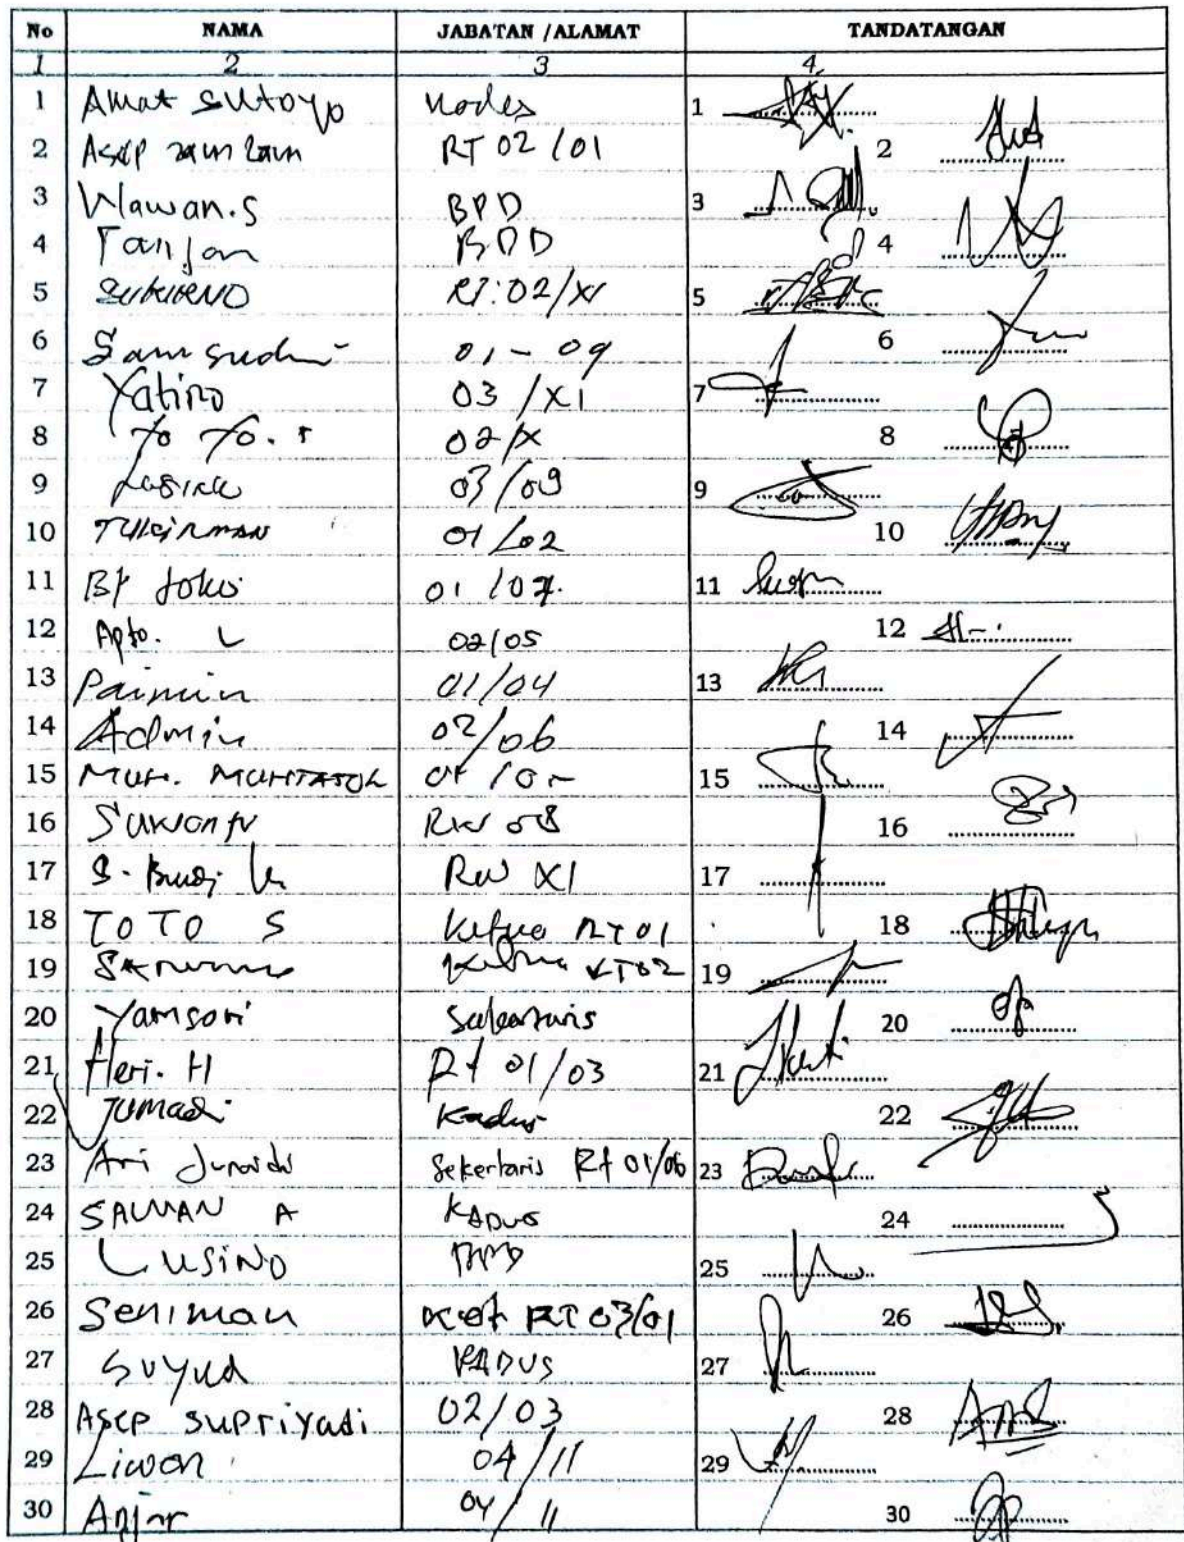 No NAMA JABATAN / ALAMAT TANDATANGAN
1 2 3 4
1 Amat Sutoyo Kades 1
2 Asep zam zam RT 02 / 01 2
3 Wawan.S BPD 3
4 Tanjan BPD 4
5 SUKIRNO RT:02/XI 5
6 Samsudi 01 - 09 6
7 Yatino 03 / XI 7
8 Yo Yo. 02/X 8
9 03/09 9
10 TUGIRMAN 01/02 10
11 Bp Joko 01 /07. 11
12 Apto. L 02/05 12
13 Paimin 01/04 13
14 Admin 02/06 14
15 MUH. 15
16 RW 08 16
17 S. Budi RW XI 17
18 TOTO S Ketua RT 01 18
19 Ketua RT02 19
20 Yamsori Sekertaris 20
21 Heri. H Rt 01/03 21
22 Jumadi Kadus 22
23 Ari Junaidi Sekertaris Rt 01/06 23
24 SALMAN A KADUS 24
25 LUSINO BPD 25
26 Seniman Ket RT 03/01 26
27 SUYUd KADUS 27
28 Asep Supriyadi 02/03 28
29 Liwon 04/11 29
30 Anjar 04/11 30